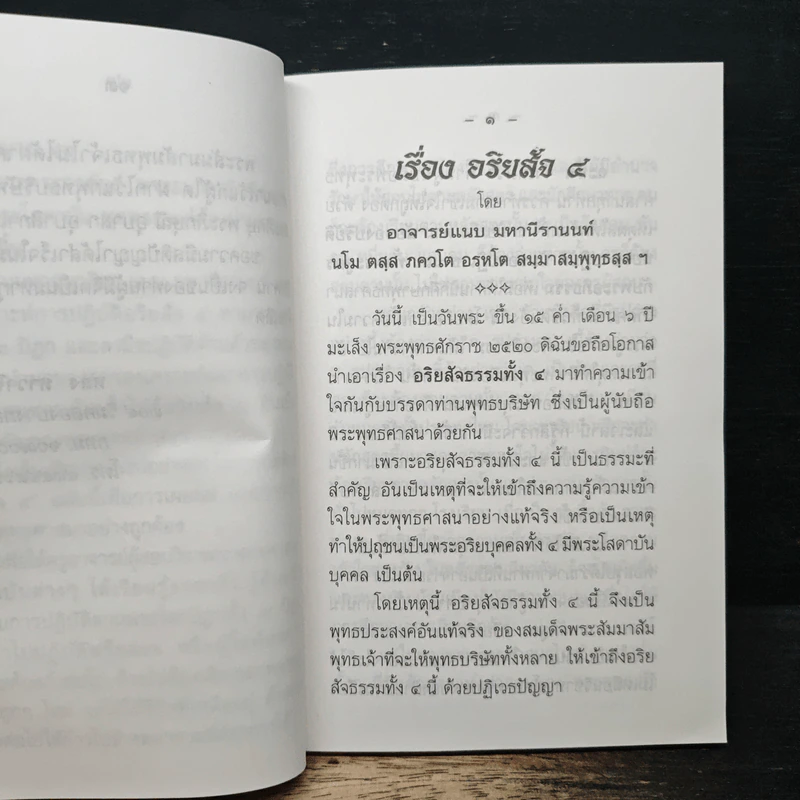 – ๑ –
เรื่อง อริยสัจ ๔
โดย
อาจารย์แนบ มหานีรานนท์
นโม ตสฺส ภควโต อรหโต สมฺมาสมฺพุทฺธสฺส ฯ
วันนี้ เป็นวันพระ ขึ้น ๑๕ ค่ำ เดือน ๖ ปี
มะเส็ง พระพุทธศักราช ๒๕๒๐ ดิฉันขอถือโอกาส
นำเอาเรื่อง อริยสัจธรรมทั้ง ๔ มาทำความเข้า
ใจกันกับบรรดาท่านพุทธบริษัท ซึ่งเป็นผู้นับถือ
พระพุทธศาสนาด้วยกัน
เพราะอริยสัจธรรมทั้ง ๔ นี้ เป็นธรรมะที่
สำคัญ อันเป็นเหตุที่จะให้เข้าถึงความรู้ความเข้า
ใจในพระพุทธศาสนาอย่างแท้จริง หรือเป็นเหตุ
ทำให้ปุถุชนเป็นพระอริยบุคคลทั้ง ๔ มีพระโสดาบัน
บุคคล เป็นต้น
โดยเหตุนี้ อริยสัจธรรมทั้ง ๔ นี้ จึงเป็น
พุทธประสงค์อันแท้จริง ของสมเด็จพระสัมมาสัม
พุทธเจ้าที่จะให้พุทธบริษัททั้งหลาย ให้เข้าถึงอริย
สัจธรรมทั้ง ๔ นี้ ด้วยปฏิเวธปัญญา